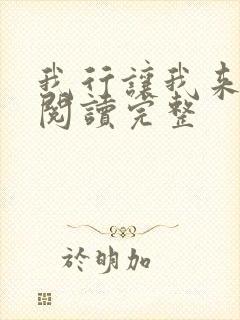 我行讓我来
閱讀完整
於明加